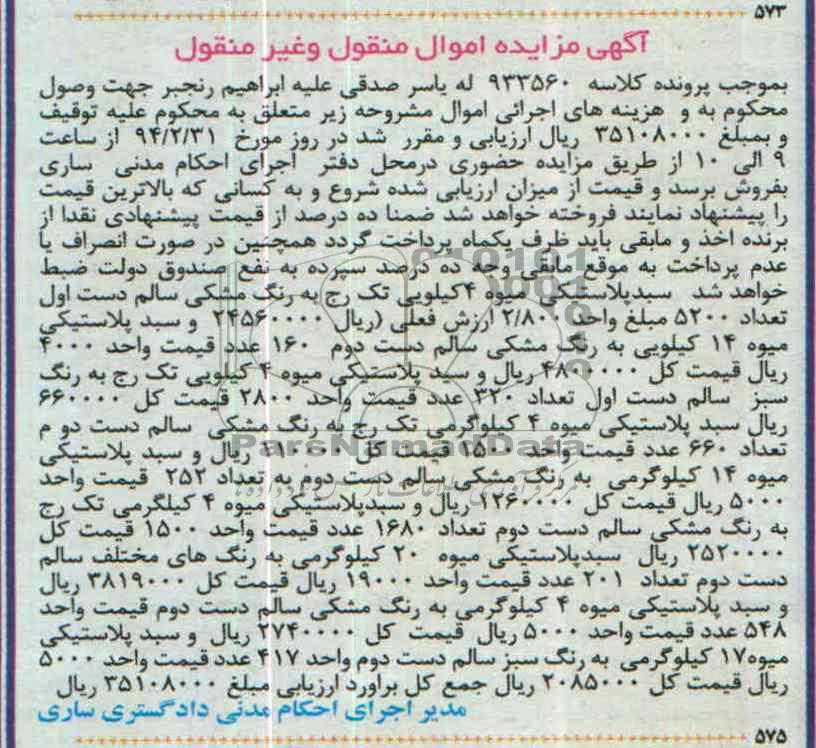 ۵۷۳
آگهی مزایده اموال منقول وغیر منقول
بموجب پرونده کلاسه ۹۳۳۵۶۰ له یاسر صدقی علیه ابراهیم رنجبر جهت وصول
محکوم به و هزینه های اجرائی اموال مشروحه زیر متعلق به محکوم علیه توقیف
و بمبلغ ۳۵۱۰۸۰۰۰ ریال ارزیابی و مقرر شد در روز مورخ ۹۴/۲/۳۱ از ساعت
۹ الی ۱۰ از طریق مزایده حضوری درمحل دفتر اجرای احکام مدنی ساری
بفروش برسد و قیمت از میزان ارزیابی شده شروع و به کسانی که بالاترین قیمت
را پیشنهاد نمایند فروخته خواهد شد ضمنا ده درصد از قیمت پیشنهادی نقدا از
برنده اخذ و مابقی باید ظرف یکماه پرداخت گردد همچنین در صورت انصراف یا
عدم پرداخت به موقع مابقی وجه ده درصد سپرده به نفع صندوق دولت ضبط
خواهد شد سبدپلاستیکی میوه ۴کیلویی تک رج به رنگ مشکی سالم دست اول
تعداد ۵۲۰۰ مبلغ واحد ۲/۸۰۰ ارزش فعلی (ریال ۲۴۵۶۰۰۰۰ و سبد پلاستیکی
میوه ۱۴ کیلویی به رنگ مشکی سالم دست دوم ۱۶۰ عدد قیمت واحد ۴۰۰۰
ریال قیمت کل ۴۸۰۰۰۰۰ ریال و سبد پلاستیکی میوه ۴ کیلویی تک رج به رنگ
سبز سالم دست اول تعداد ۳۲۰ عدد قیمت واحد ۲۸۰۰ قیمت کل ۶۶۰۰۰۰
ریال سبد پلاستیکی میوه ۴ کیلوگرمی تک رج به رنگ مشکی سالم دست دو م
تعداد ۶۶۰ عدد قیمت واحد ۱۵۰۰ قیمت کل ریال و سبد پلاستیکی
میوه ۱۴ کیلوگرمی به رنگ مشکی سالم دست دوم به تعداد ۲۵۲ قیمت واحد
۵۰۰۰ ریال قیمت کل ۱۲۶۰۰۰۰ ریال و سبدپلاستیکی میوه ۴ کیلگرمی تک رج
به رنگ مشکی سالم دست دوم تعداد ۱۶۸۰ عدد قیمت واحد ۱۵۰۰ قیمت کل
۲۵۲۰۰۰۰ ریال سبدپلاستیکی میوه ۲۰ کیلوگرمی به رنگ های مختلف سالم
دست دوم تعداد ۲۰۱ عدد قیمت واحد ۱۹۰۰۰ ریال قیمت کل ۳۸۱۹۰۰۰ ریال
و سبد پلاستیکی میوه ۴ کیلوگرمی به رنگ مشکی سالم دست دوم قیمت واحد
۵۴۸ عدد قیمت واحد ۵۰۰۰ ریال قیمت کل ۲۷۴۰۰۰۰ ریال و سبد پلاستیکی
میوه۱۷ کیلوگرمی به رنگ سبز سالم دست دوم واحد ۴۱۷ عدد قیمت واحد ۵۰۰۰
ریال قیمت کل ۲۰۸۵۰۰۰ ریال جمع کل براورد ارزیابی مبلغ ۳۵۱۰۸۰۰۰ ریال
مدیر اجرای احکام مدنی دادگستری ساری
۵۷۵
ParsNamadData